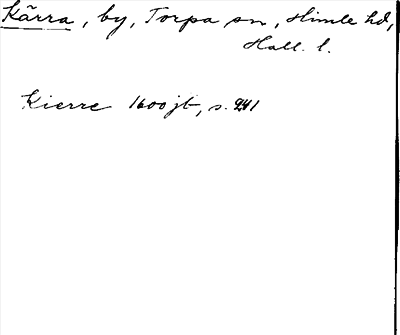 Kärra, by, Torpa sn, Himle hd,
Hall. l.
Kierre 1600jb, s. 241